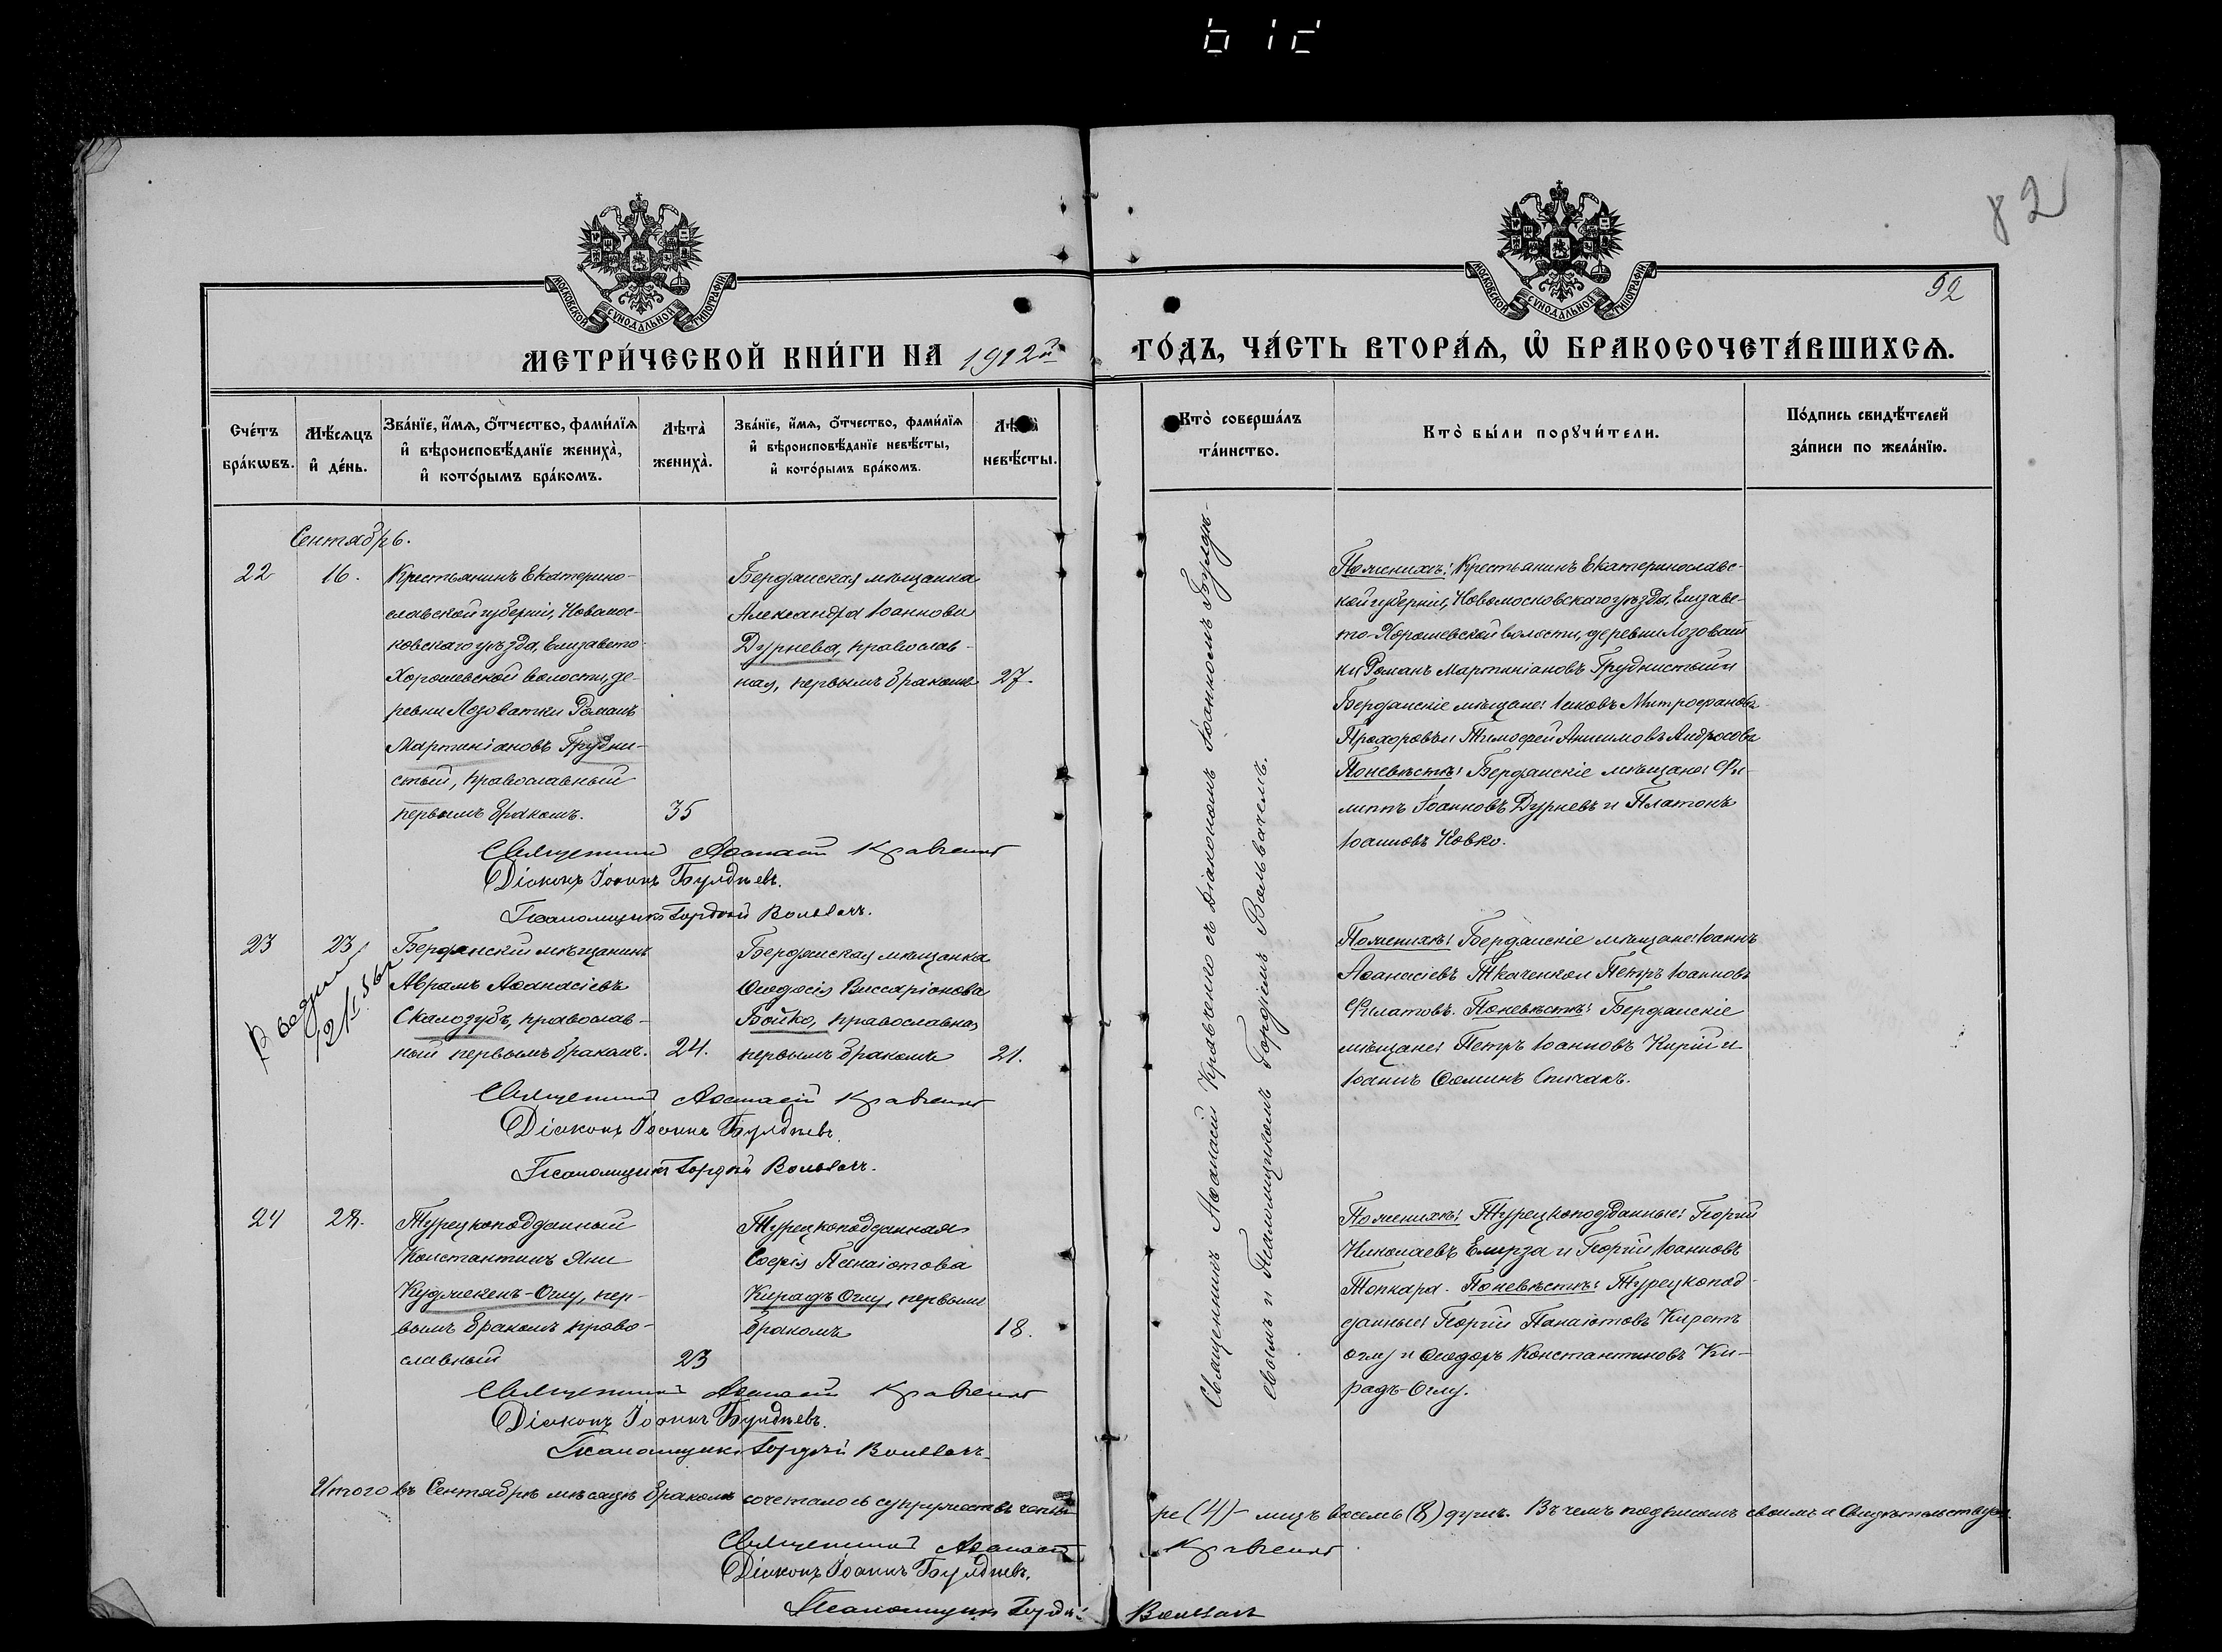 82
92
МОСКОВСКОЙ СѴНОДАЛЬНОЙ ТИПОГРАФІИ
МОСКОВСКОЙ СѴНОДАЛЬНОЙ ТИПОГРАФІИ
МЕТРИ́ЧЕСКОЙ КНИ́ГИ НА 1912й ГО́ДЪ, ЧА́СТЬ ВТОРА́Ѧ, Ѡ БРАКОСОЧЕТА́ВШИХСѦ.
Сче́тъ бра́кѡвъ.
Мѣ́сѧцъ и҆ де́нь.
Зва́нїе, и҆́мѧ, о҆́тчество, фами́лїѧ и҆ вѣроисповѣ́данїе жениха̀, и҆ кото́рымъ бра́комъ.
Лѣта̀ жениха̀.
Зва́нїе, и҆́мѧ, о҆́тчество, фами́лїѧ и҆ вѣроисповѣ́данїе невѣ́сты, и҆ кото́рымъ бра́комъ.
Лѣта̀ невѣ́сты.
Кто̀ соверша́лъ та́инство.
Кто̀ бы́ли порꙋчи́тели.
По́дпись свидѣ́телей за́писи по жела́нїю.
Сентябрь.
22
16.
Крестьянинъ Екатерино-
славской губерніи, Новомос-
ковскаго уѣзда, Елизавето-
Хорошевской волости, де-
ревни Лозоватки Романъ
Мартиніановъ Грудни-
стый, православный
первымъ бракомъ.
35
Бердянская мѣщанка
Александра Іоаннова
Дурнева, православ-
ная, первымъ бракомъ
27.
Священникъ Аѳанасій Кравченко съ Діакономъ Іоанномъ Булдѣ-
евымъ и Псаломщикомъ Гордіемъ Вольвачемъ.
По женихѣ: Крестьянинъ Екатеринославс-
кой губерніи, Новомосковскаго уѣзда, Елизаве-
то-Хорошевской волости, деревни Лозоват
ки Романъ Мартиніановъ Груднистый и
Бердянскіе мѣщане: Іаковъ Митрофановъ
Прохоровъ и Тимофей Анисимовъ Андросовъ
По невѣстѣ: Бердянскіе мѣщане: Фи-
липпъ Іоанновъ Дурневъ и Платонъ
Іоанновъ Ковко.
Священникъ Аѳанасій Кравченко
Діаконъ Іоаннъ Булдѣевъ.
Псаломщикъ Гордій Вольвачъ.
23
23
Развод
12/I 56 г.
Бердянскій мѣщанинъ
Аврамъ Аѳанасіевъ
Скалозубъ, православ-
ный первымъ бракомъ.
24.
Бердянская мѣщанка
Ѳеодосія Виссаріонова
Бойко, православная
первымъ бракомъ
21.
По женихѣ: Бердянскіе мѣщане: Іоаннъ
Аѳанасіевъ Ткаченко и Петръ Іоанновъ
Филатовъ. По невѣстѣ: Бердянскіе
мѣщане: Петръ Іоанновъ Кирій и
Іоаннъ Ѳоминъ Спичакъ.
Священникъ Аѳанасій Кравченко
Діаконъ Іоаннъ Булдѣевъ.
Псаломщикъ Гордій Вольвачъ.
24
28.
Турецкоподданный
Константинъ Яни
Куджекенъ-Оглу, пер-
вымъ бракомъ право-
славный
23
Турецкоподданная
Софія Панаіотова
Кирадъ Оглу, первымъ
бракомъ
18.
По женихѣ: Турецкоподданные: Георгій
Николаевъ Емирза и Георгій Іоанновъ
Топкара. По невѣстѣ: Турецкопод-
данные: Георгій Панаіотовъ Киратъ
оглу и Ѳеодоръ Константиновъ Ки-
радъ-Оглу.
Священникъ Аѳанасій Кравченко
Діаконъ Іоаннъ Булдѣевъ.
Псаломщикъ Гордій Вольвачъ.
Итого въ Сентябрѣ мѣсяцѣ бракомъ сочеталось супружествъ четы-
ре (4) - лицъ восемь (8) душъ. Въ чемъ подписомъ своимъ и свидѣтельствуемъ.
Священникъ Аѳанасій Кравченко
Діаконъ Іоаннъ Булдѣевъ.
Псаломщикъ Гордій Вольвачъ